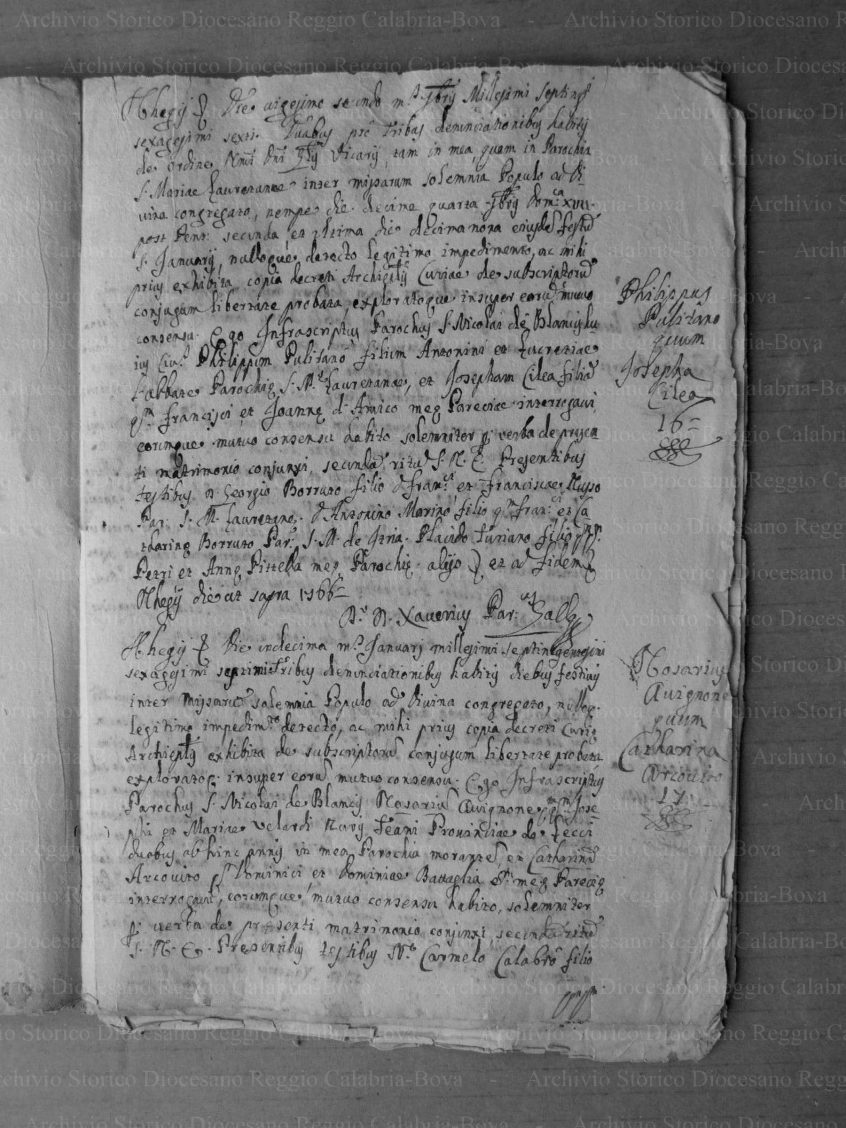 Rhegij Die vigesimo secundo m.s 7bris Millesimi septing.i
sexagesimi sexti. Duabus pro tribus denunciationibus habitis
de ordine Rmi Dni Vicarij, tam in mea, quam in Parochia
S. Mariae Lauretanae inter missarum solemnia Populo ad Di-
vina congregato, nempe die decima quarta 7bris Dom.ca XVII.
post Pent. secunda et ultima die decima nona eiusdem festo
S. Januarij, nulloque detecto legitimo impedimento, ac mihi
prius exhibita copia decreti Archieplis Curiae de subscriptorum
conjugum libertate probata, exploratoque insuper eorum mutuo
consensu. Ego Infrascriptus Parochus S. Nicolai de
ius Civ. Philippum Pulitanò filium Antonini et Lucretiae
Labbate Parochiae S. M. Lauretanae, et Josepham Cilea filia
qm Francisci, et Joannae d'Amico meae Pareciae interrogavi
eorumque mutuo consensu habito solemniter p. verba de presen
ti matrimonio conjunxi, secundum ritum S. R. E. Presentibus
testibus D. Georgio Borruto filio D. Fran.ci et Franciscae Russo
Par. S. M. Lauretanae, D. Antonino Marino filio qm Fran.ci et Ca
tharinae Borruto Par. S. M. de Itria. Placido Turiano filio qm
Petri et Annae Pittella meae Parochiae. alijsq et ad fidem
Rhegij die ut supra 1766
D. Xaverius Par.us
Philippus
Pulitanò
quum
Josepha
Cilea
16
Rhegij Die undecima m.s Januarij millesimi septingentesimi
sexagesimi septimi tribus denunciationibus habitis diebus festivis
inter missarum solemnia Populo ad Divina congregato, nulloq.
legitimo impedim.to detecto, ac mihi prius copia decreti Curiae
Archieplis exhibita de subscriptorum conjugum libertate probata
exploratoq. insuper eorum mutuo consensu. Ego Infrascriptus
Parochus S. Nicolai de Rosarium Avignone Jose
phi et Mariae Velardi Provintiae de Lecci
duobus ab hinc annis in mea Parochia morantem, et Catharinam
Arcovito Dominici et Dominiae Battaglia meae Pareciae
interrogavi, eorumque mutuo consensu habito, solemniter
p. verba de presenti matrimonio conjunxi, secundum ritum
S. R. E. Presentibus testibus Carmelo Calabrò filio
Rosarius
Avignone
quum
Catharina
Arcovito
17
Archivio Storico Diocesano Reggio Calabria-Bova